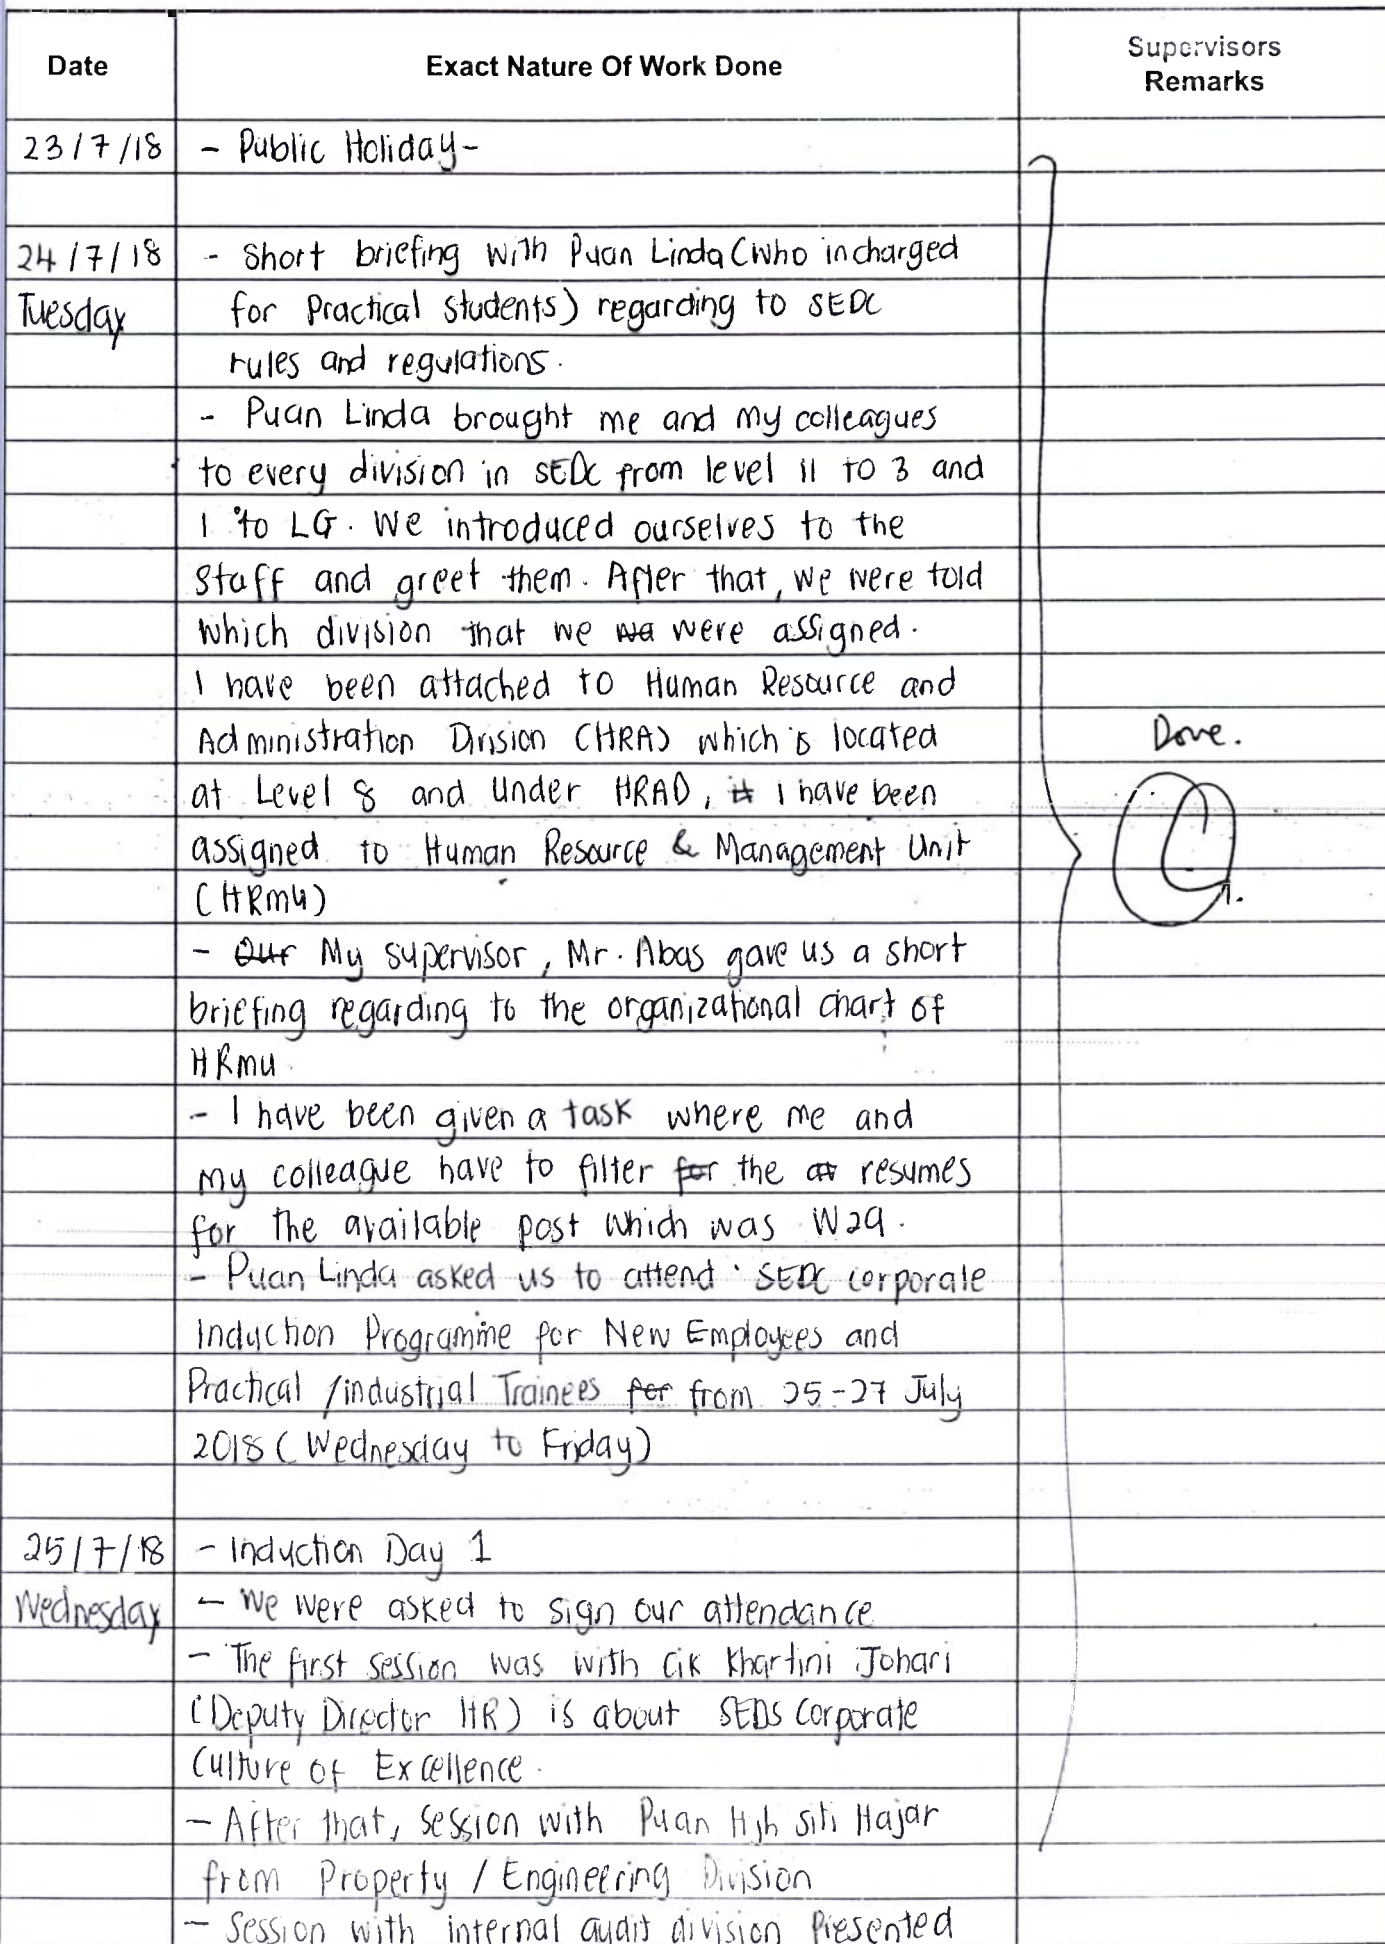 Date Exact Nature Of Work Done Supervisors
Remarks
23/7/18 - Public Holiday-
24/7/18 - Short briefing with Puan Linda (who incharged
Tuesday for Practical Students) regarding to SEDC
rules and regulations.
- Puan Linda brought me and my colleagues
to every division in SEDC from level 11 to 3 and
1 to LG. We introduced ourselves to the
Staff and greet them. After that, we were told
which division that we wa were assigned.
I have been attached to Human Resource and
Administration Division (HRA) which is located
Done.
at Level 8 and under HRAD, it I have been
assigned to Human Resource & Management Unit
(HRMU)
- Our My supervisor, Mr. Abas gave us a short
briefing regarding to the organizational chart of
HRMU
- I have been given a task where me and
my colleague have to filter for the resumes
for the available post which was W29.
- Puan Linda asked us to attend SEDC corporate
Induction Programme for New Employees and
Practical /industrial Trainees for from 25-27 July
2018 (Wednesday to Friday)
25/7/18 - Induction Day 1
Wednesday - We were asked to sign our attendance
- The first session was with Cik Khartini Johari
(Deputy Director HR) is about SEDS Corporate
Culture of Excellence.
- After that, session with Puan Hjh Siti Hajar
from Property / Engineering Division
- Session with internal audit division Presented